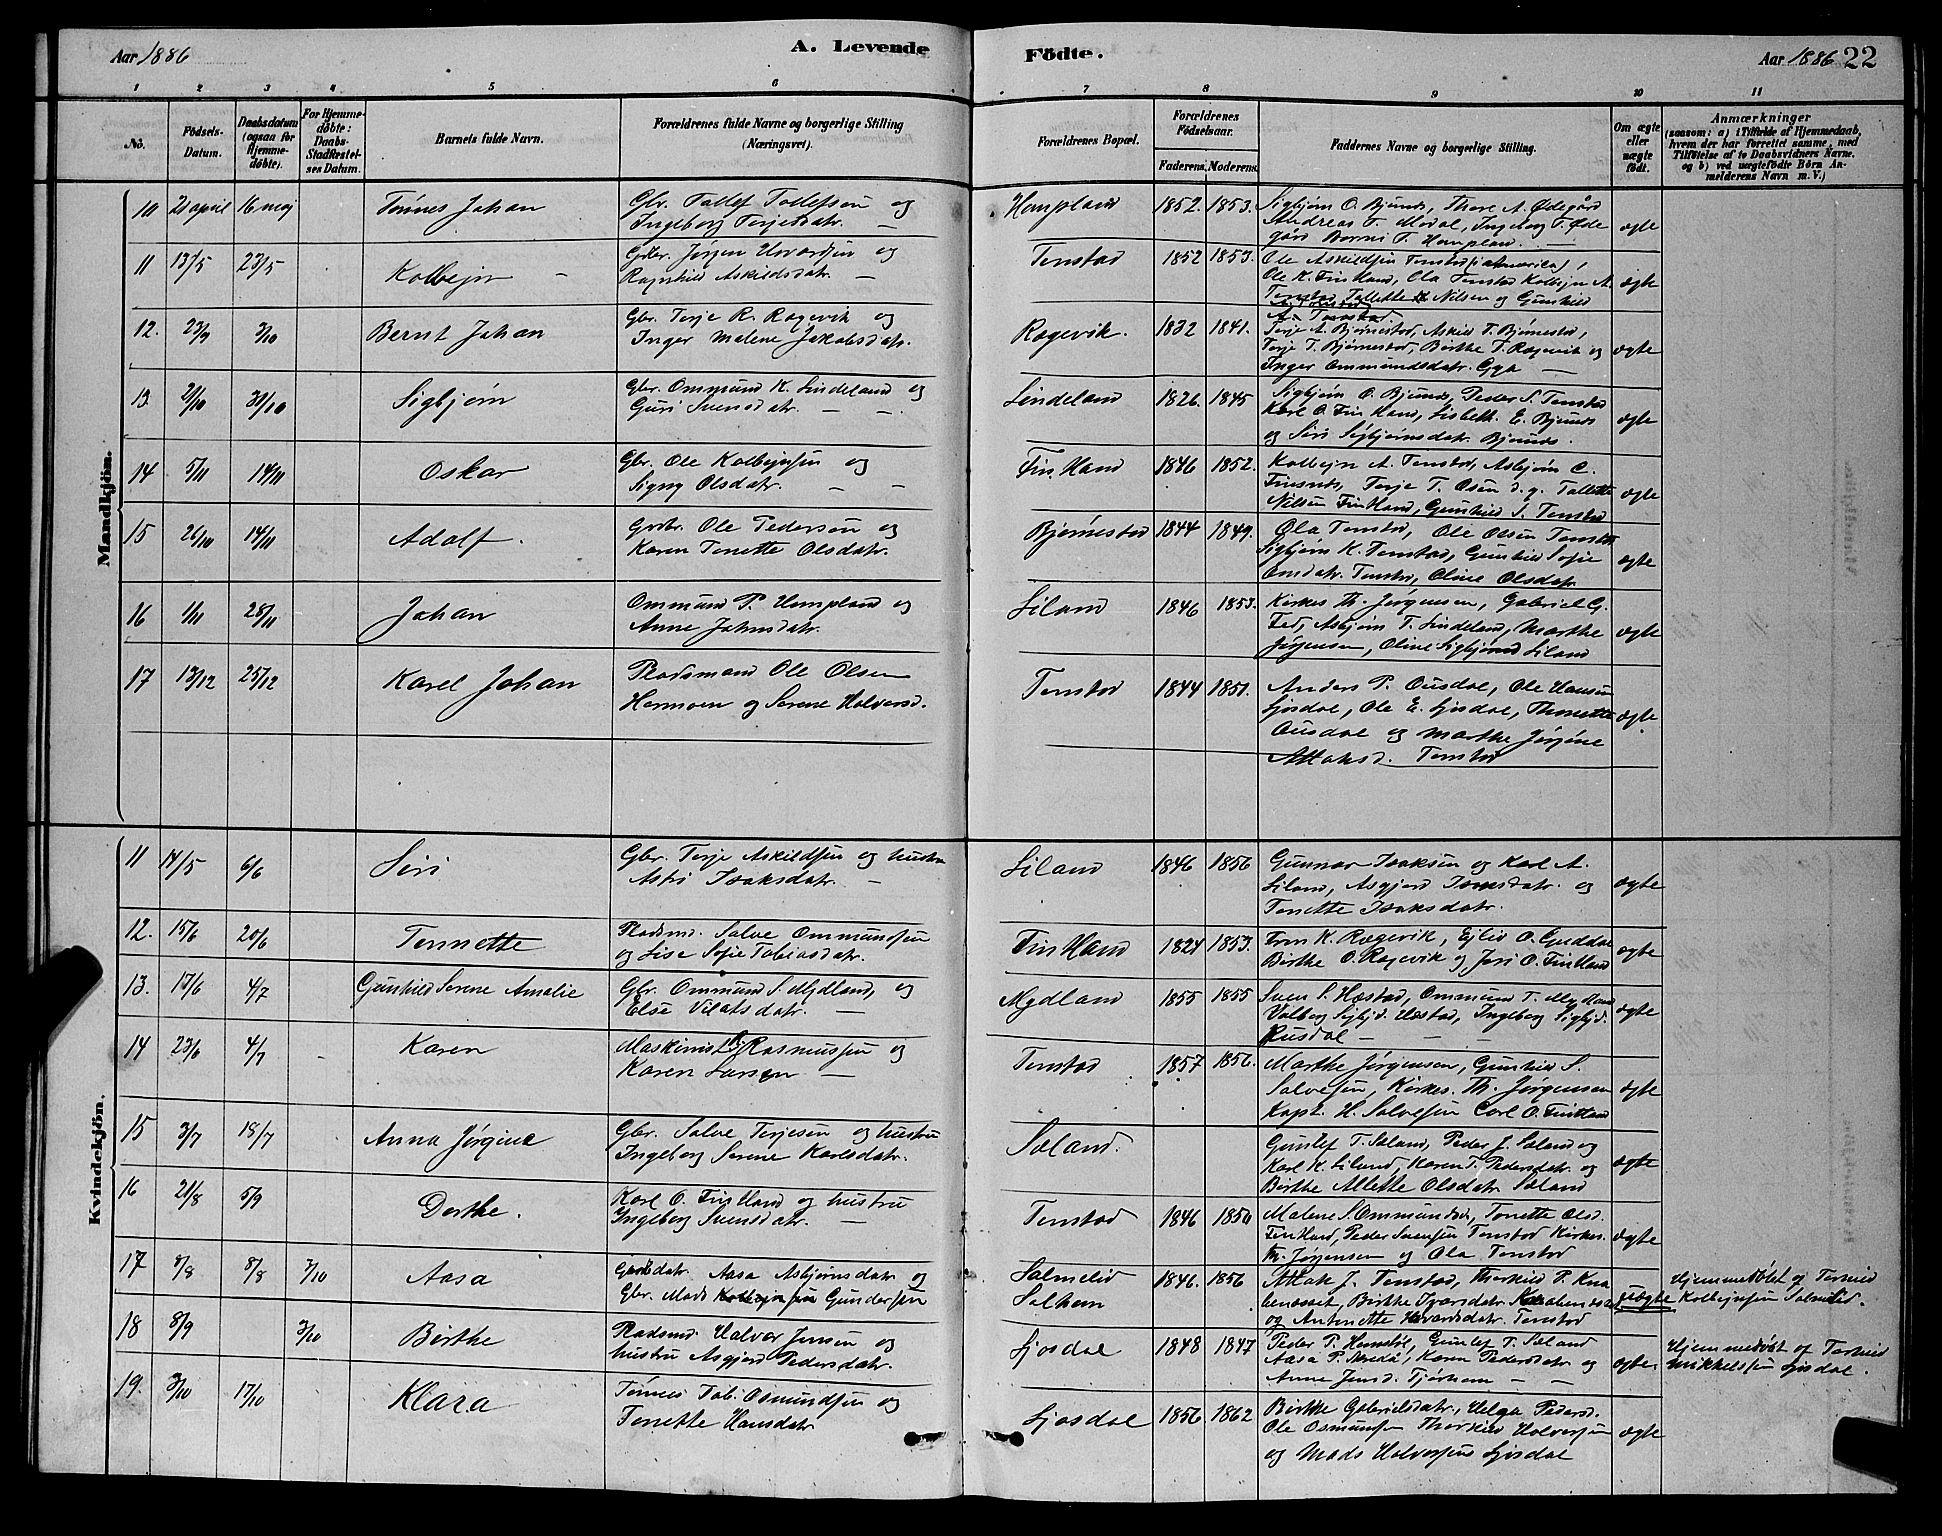 Aar 1886
A. Levende Födte.
Aar 1886 22
1 2 3 4 5 6 7 8 9 10 11
No.
Födsels-Datum.
Daabsdatum (ogsaa for Hjemmedöbte).
For Hjemmedöbte: Daabs-Stadfæstelses Datum.
Barnets fulde Navn.
Forældrenes fulde Navne og borgerlige Stilling (Næringsvei).
Forældrenes Bopæl.
Forældrenes Födselsaar.
Faderens. Moderens.
Faddernes Navne og borgerlige Stilling.
Om ægte eller uægte födt.
Anmærkninger
(saasom: a) i Tilfælde af Hjemmedaab, hvem der har forrettet samme, med Tilföielse af to Daabsvidners Navne, og b) ved uægtefödte Börn Anmelderens Navn m. V.)
Mandkjön.
10 21 april 16 maj Tønnes Johan
Gbr. Tallef Tollefsen og
Ingeborg Terjesdatr. —
Hompland 1852. 1853.
Sigbjørn O. Bjunds, Thore A. Ødegård
Andreas T. Modal, Ingeborg T. Øde
gård Berni T. Hompland. — ægte
11 13/5 23/5 Kolbejn —
Gbr. Jørgen Havardsen og
Ragnhild Askildsdatr. —
Tonstad 1852 1853.
Ole Askildsen Tonstad (i Amerika),
Ole K. Finsland, Ola Tonstad Kolbejn A.
Tonstad, Tallette Nilsen og Gunhild
A. Tonstad ægte
12. 23/9 3/10 Bernt Johan
Gbr. Terje R. Rogevik og
Inger Malene Jakobsdatr.
Rogevik. 1832 1841.
Terje A. Bjørnestad, Askild T. Bjørnestad,
Terje T. Bjørnestad, Berthe T. Rogevik og
Inger Ommundsdatr. Gya — ægte
13. 2/10 31/10 Sigbjørn
Gbr. Ommund K. Lindeland og
Guri Svensdatr. — —
Lindeland 1826. 1845
Sigbjørn O. Bjunds, Peder S. Tonstad
Karl O. Finsland, Lisbeth E. Bjunds
og Siri Sigbjørnsdatr. Bjunds. ægte
14 5/11 14/11 Oskar
Gbr. Ole Kolbejnsen og
Signy Olsdatr. — —
Finsland 1846 1852.
Kolbejn A. Tonstad, Asbjørn C.
Finsnes, Terje T. Osen d. y. Tallette
Nilsen Finsland, Gunhild S. Tonstad ægte
15 26/10 14/11 Adolf.
Gbr. Ole Pedersen og
Karen Tonette Olsdatr.
Bjørnestad 1844 1849.
Ola Tonstad, Ole Olsen Tonstad
Sigbjørn K. Tonstad, Gunhild Sofie
Tonstad, Oline Olsdatr. ægte
16 1/11 28/11 Johan
Ommund P. Hompland og
Anne Johnsdatr.
Liland 1846 1853.
Kirkes. Th. Jørgensen, Gabriel G.
Fed, Asbjørn T. Lindeland, Marthe
Jørgensen, Oline Sigbjørnsd Liland ægte
17 13/12 25/12 Karel Johan
Pladsmand Ole Olsen
Hermoen og Serene Halvorsd.
Tonstad 1844 1851.
Anders P. Ousdal, Ole Hansen
Ljosdal, Ole E. Ljosdal, Thonette
Ousdal og Marthe Jørgine
Attaksd. Tonstad ægte
Kvindekjön.
11 14/5 6/6 Siri
Gbr. Terje Askildsen og hustru
Astri Isaksdatr. —
Liland 1846 1856
Gunnar Isaksen og Karl A.
Liland, Asgjerd Isaksdatr. og
Tonette Isaksdatr. ægte
12. 15/6 20/6 Tonnette
Pladsmd. Salve Ommundsen
og Lise Sofie Tobiasdatr.
Finsland 1824 1853.
K. Rogevik, Ejliv O. Guddal
Birthe O. Rogevik og Jori O. Finsland ægte
13. 15/6 4/7 Gunhild Serene Amalie
Gbr. Ommund S. Mydland, og
Else Vilatsdatr. —
Mydland 1855 1855
Sven S. Hæstad, Ommund T. Mydland
Valborg Sigbjd. Hæstad, Ingeborg Sigbjd.
Rusdal — — — ægte
14 23/6 4/7 Karen
Maskinist Rasmussen og
Karen Larsen —
Tonstad 1857 1856.
Marthe Jørgensen, Gunhild S.
Salvesen, Kirkes. Th. Jørgensen
Kapt. H. Salvesen Carl O. Finsland ægte
15 3/7 18/7 Anna Jørgine
Gbr. Salve Terjesen og hustru
Ingeborg Serene Karlsdatr.
Sæland.
Gunlef T. Sæland, Peder J. Sæland og
Karl K. Liland, Karen T. Pedersdatr. og
Birthe Allette Olsdatr. Sæland ægte
16 21/8 5/9 Dorthe.
Karl O. Finsland og hustru
Ingeborg Svensdatr. —
Tonstad 1846 1850
Malene S. Ommundsd., Tonette Olsd.
Finsland, Peder Svensen Tonstad Kirkes.
Th. Jørgensen og Ola Tonstad ægte
17 8/8 8/8 3/10 Aasa
Aasa Asbjørnsdatr og
Gbr. Mads Gundersen
Salmelid
Solhom 1846. 1856
Attak J. Tonstad, Thorkild P. Kna
benosset, Birthe Ivarsdatr Knabenosset
og Antonette Havardsdatr. Tonstad uægte
Hjemmedøbt af Torkild
Kolbejnsen Salmelid.
18 8/9 3/10 Birthe
Pladsmd. Halvor Jensen og
hustru Asgjerd Pedersdatr.
Ljosdal 1848 1847
Peder P. Homstøl, Gunlef T. Sæland
Aasa P. Skreda, Karen Pedersdatr og
Anne Jensd. Tjørhom — — ægte.
Hjemmedøbt af Torkild
Mikkelsen Ljosdal.
19. 3/10 17/10 Klara
Tønnes Tob. Osmundsen og
Tonette Hansdatr
Ljosdal 1856 1862
Birthe Gabrielsdatr., Helga Pedersd.
Ole Osmundsen Thorkild Halvorsen
og Mads Halvorsen Ljosdal ægte